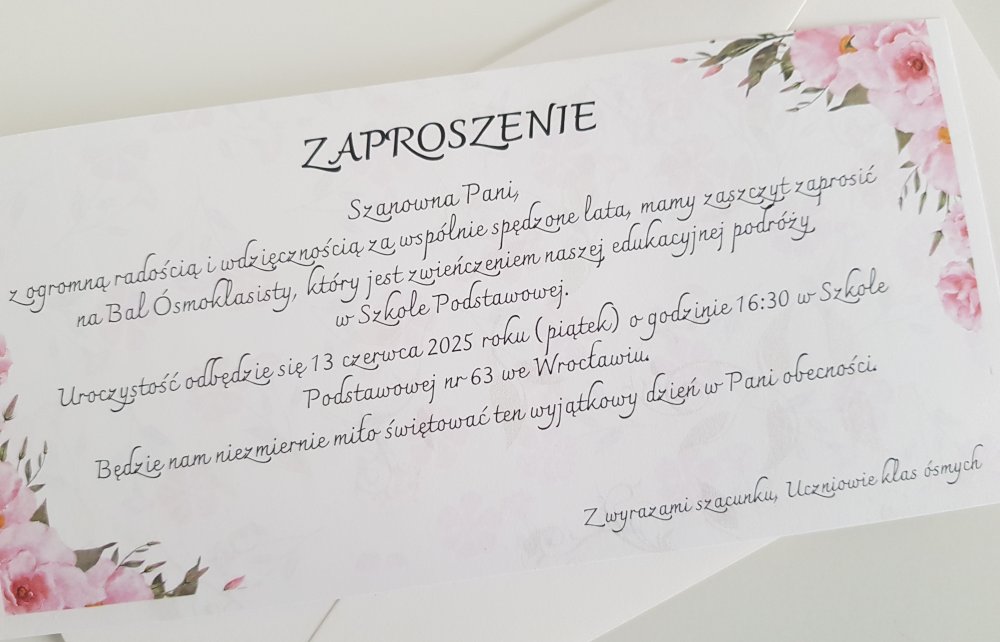 ZAPROSZENIE
Szanowna Pani,
z ogromną radością i wdzięcznością za wspólnie spędzone lata, mamy zaszczyt zaprosić
na Bal Ósmoklasisty, który jest zwieńczeniem naszej edukacyjnej podróży
w Szkole Podstawowej.
Uroczystość odbędzie się 13 czerwca 2025 roku (piątek) o godzinie 16:30 w Szkole
Podstawowej nr 63 we Wrocławiu.
Będzie nam niezmiernie miło świętować ten wyjątkowy dzień w Pani obecności.
Z wyrazami szacunku, Uczniowie klas ósmych